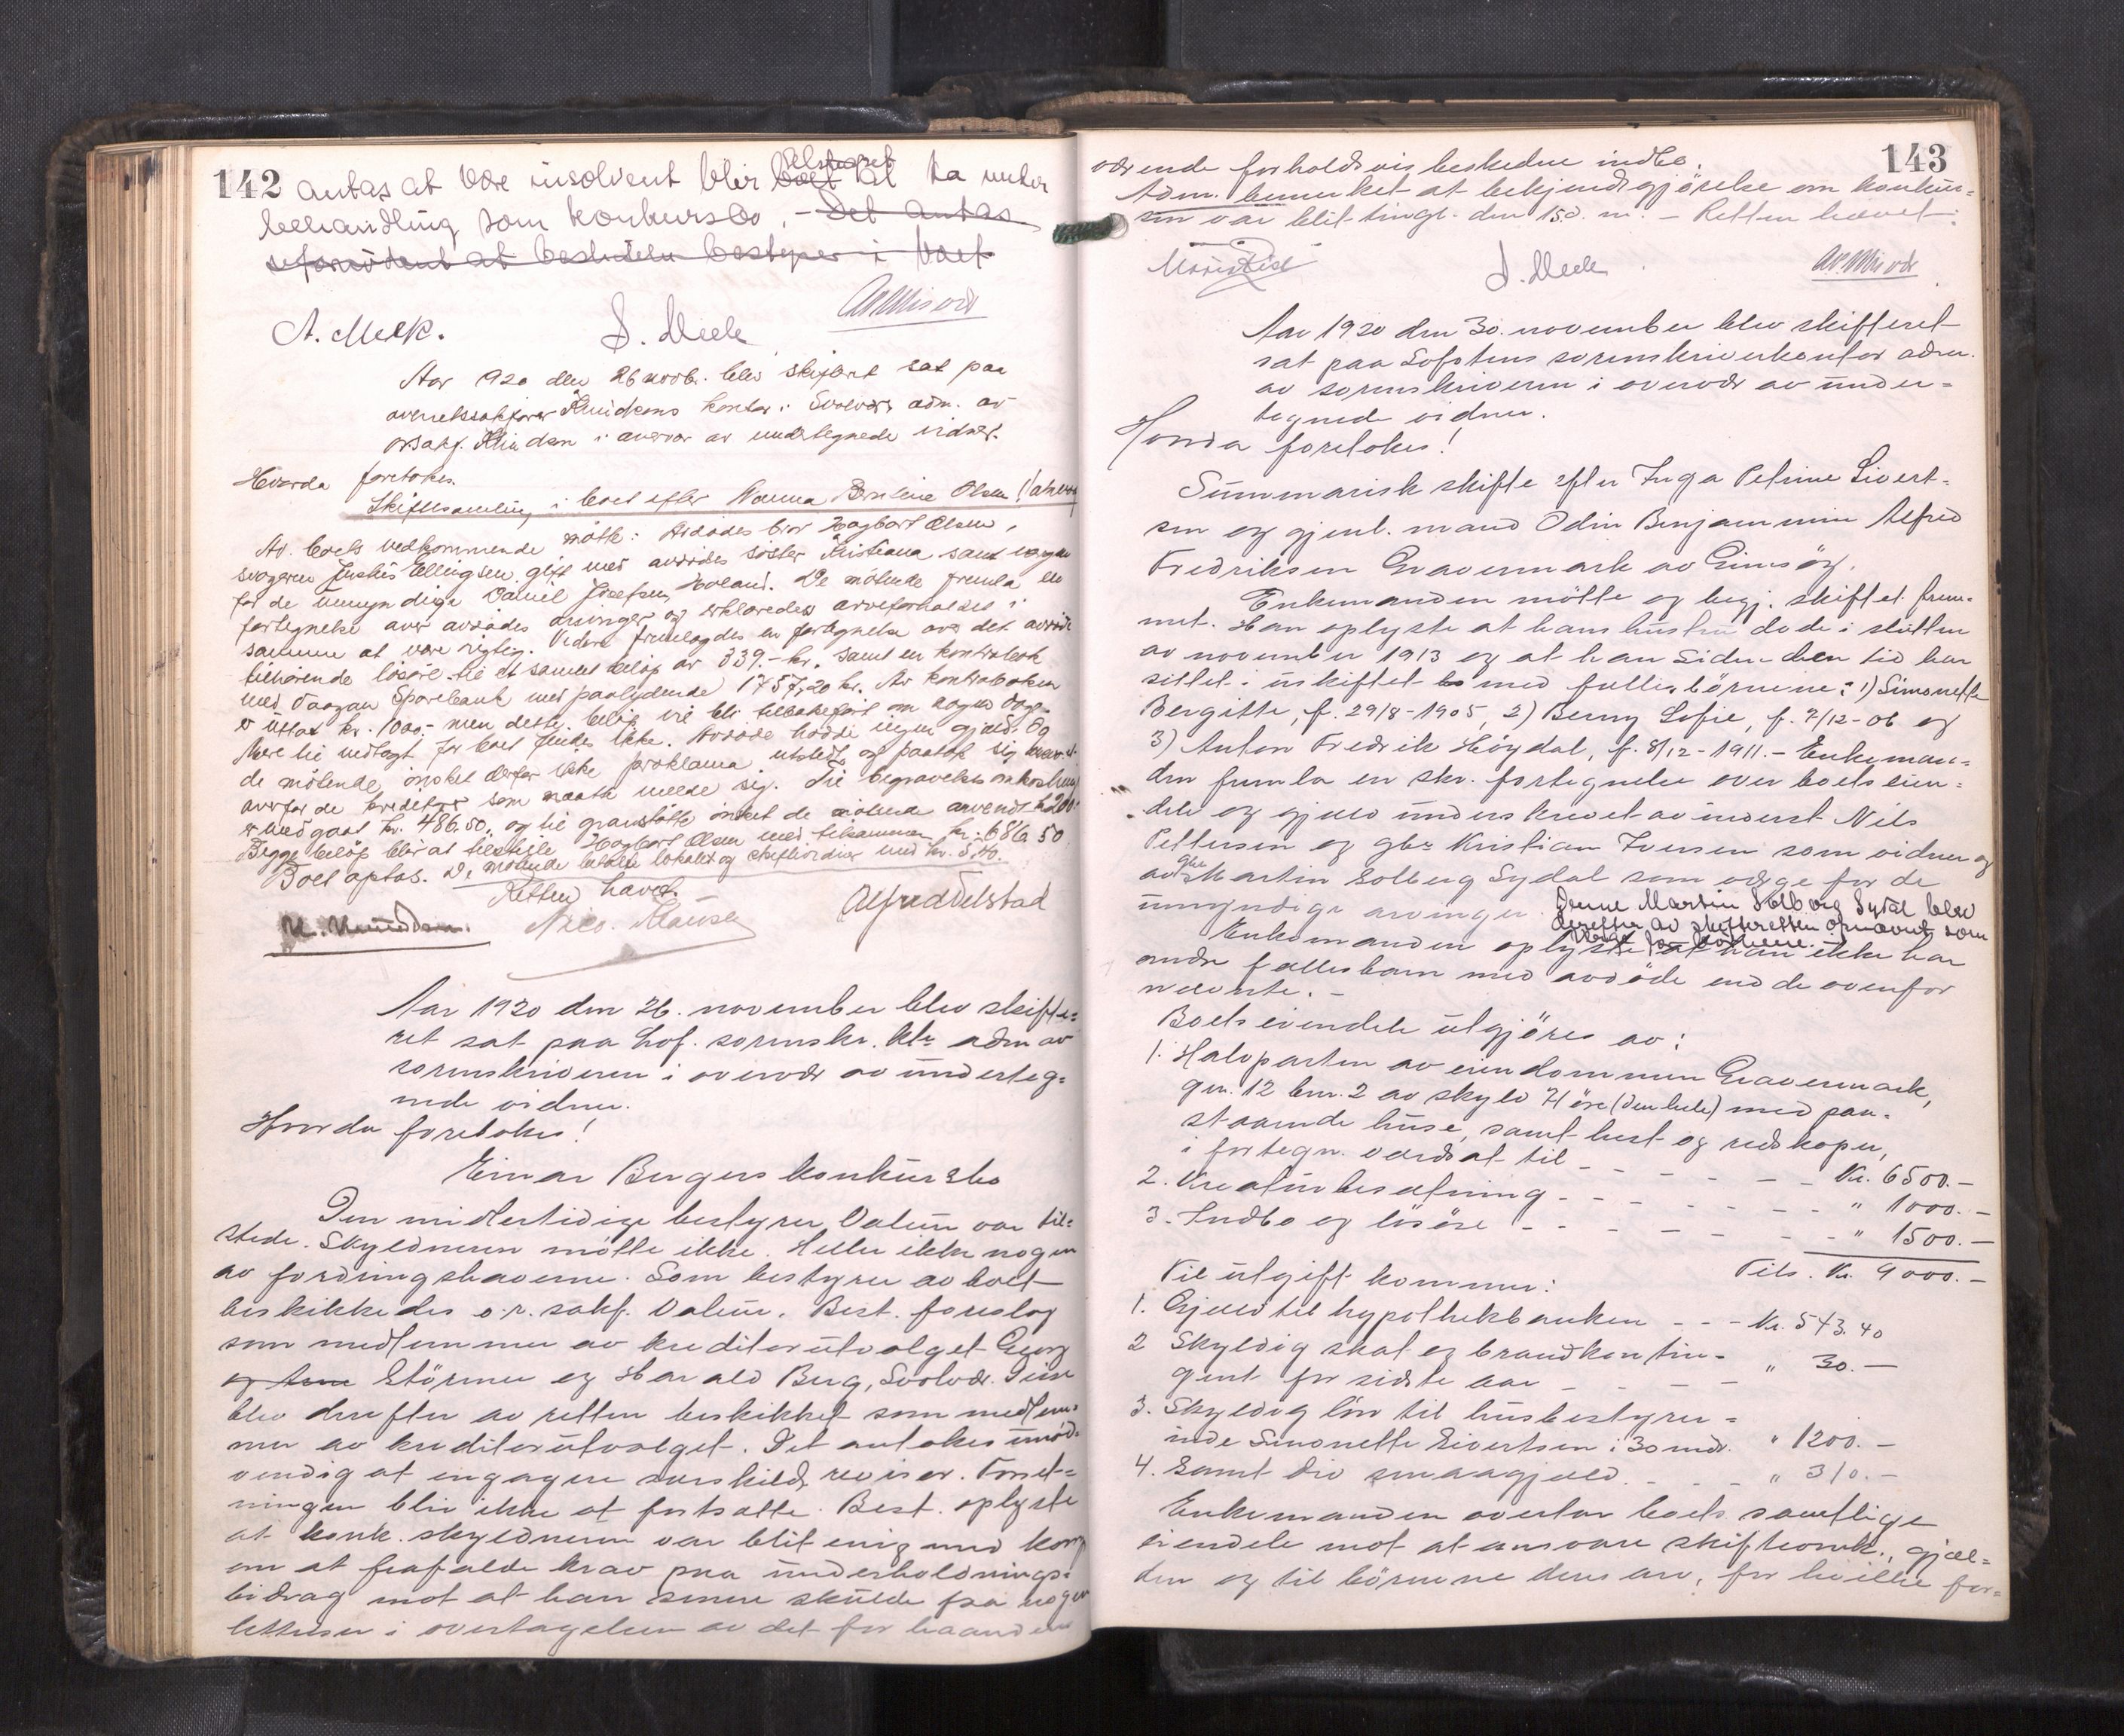 142 antas at være insolvent blir boet at ta under
behandling som konkursbo. – Det antas
at beskikke bestyrer i boet
A. Meek. S. Meek
Aar 1920 den 26 novbr. blev skifteret sat paa
overretssakfører Knudsens kontor i Svolvær adm. av
orsakf. Knudsen i overvær av undertegnede vidner.
Hvorda foretokes.
Skiftesamling i boet efter Nanna Olsen
Av boets vedkommende møtte: Avdødes bror Hagbart Olsen,
svogeren Justus Ellingsen gift med avdødes søster Kristiana samt vergen
for de umyndige Daniel Josefsen, Holand. De møtende fremla en
fortegnelse over avdødes arvinger og erklæredes arveforholdet i
samme at være rigtig. Videre fremlagdes en fortegnelse over det avdøde
tilhørende løsøre til et samlet beløp av 339.- kr. samt en kontrabok
med Vaagan Sparebank med paalydende 1757,20 kr. Av kontraboken
er uttat kr. 1000.- men dette beløp vil bli tilbakeført om nogen dage.
Mere til indtægt for boet findes ikke. Avdøde hadde ingen gjæld. Og
de møtende ønsket derfor ikke proklama utstedt og paatok sig ansvaret
overfor de kreditorer som maatte melde sig. Til begravelsesomkostning
er medgaat kr. 486.50, og til gravstøtte ønsket de møtende anvendt kr. 200.-
Begge beløp blir at tilstille Hagbart Olsen med tilsammen kr. 686.50
Boet optas. De møtende betalte lokalet og skiftevidner med kr. 5.40.
Retten hævet.
K. Knudsen. Nico. Clausen Alfred Delstad
Aar 1920 den 26. november blev skifte-
ret sat paa Lof. sorenskr. ktr. adm av
sorenskriveren i overvær av underteg-
nede vidner.
Hvorda foretokes!
Einar Bergers konkursbo
Den midlertidige bestyrer Valeur var til-
stede. Skyldneren møtte ikke. Heller ikke nogen
av fordringshaverne. Som bestyrer av boet
beskikkedes o.r. sakf. Valeur. Best. foreslog
som medlemmer av kreditorutvalget Georg
Størmer og Harald Berg, Svolvær. Disse
blev derefter av retten beskikket som medlem-
mer av kreditorutvalget. Det antokes unød-
vendig at engagere særskild revisor. Forret-
ningen blir ikke at fortsætte. Best. oplyste
at konk. skyldneren var blit enig med
om at frafalde krav paa underholdnings-
bidrag mot at han senere skulde faa nogen
lettelser i overtagelsen av det for haanden
143
værende forholdsvis beskedne indbo.
Adm. bemerket at bekjendtgjørelse om konkur-
sen var blit tingl. den 15.d. m. – Retten hævet.
S. Meek
Aar 1920 den 30. november blev skifteret
sat paa Lofotens sorenskriverkontor adm.
av sorenskriveren i overvær av under-
tegnede vidner.
Hvorda foretokes!
Summarisk skifte efter Inga Petrine Sivert-
sen og gjenl. mand Odin Benjaminn Alfred
Fredriksen Gravermark av Gimsøy.
Enkemanden møtte og begj. skiftet frem-
met. Han oplyste at hans hustru døde i slutten
av november 1913 og at han siden den tid har
sittet i uskiftet bo med fællesbørnene: 1) Simonette
Bergitte, f. 29/8-1905, 2) Benny Sofie, f. 7/12-06 og
3) Anton Fredrik Høydal, f. 8/12-1911. – Enkeman-
den fremla en skr. fortegnelse over boets eien-
dele og gjæld underskrevet av inderst Nils
Pettersen og gbr Kristian Iversen som vidner og
av gbr Martin Solberg Sydal som værge for de
umyndige arvinger. Denne Martin Solberg Sydal blev
derefter av skifteretten opnævnt som
værge for børnene.
Enkemanden oplyste at han ikke har
andre fællesbarn med avdøde end de ovenfor
nævnte. –
Boets eiendele utgjøres av:
1. Halvparten av eiendommen Gravermark,
gnr. 12 bnr. 2 av skyld 74 øre (den hele) med paa-
staaende huse, samt hest og redskaper,
i fortegn. værdsat til - - - - - Kr. 6500.–
2. Kreaturbesætning - - - - - - " 1000.–
3. Indbo og løsøre - - - - - - " 1500.–
Tils. Kr. 9000.–
Til utgift kommer:
1. Gjæld til hypothekbanken - - - Kr. 543.40
2 Skyldig skat og brandkontin-
gent for sidste aar - - - - " 30.–
3. Skyldig løn til husbestyrer-
inde Simonette Sivertsen i 30 mdr. " 1200.–
4. Samt div smaagjæld. - - - " 310.–
Enkemanden overtar boets samtlige
eiendele mot at ansvare skifteomk., gjæl-
den og til børnene deres arv, for hvilke for-